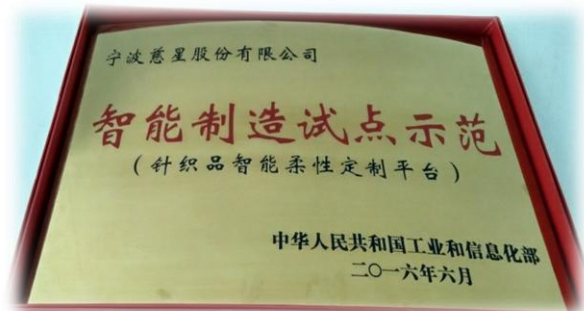 宁波慈星股份有限公司
智能制造试点示范
(针织品智能柔性定制平台)
中华人民共和国工业和信息化部
二〇一六年六月